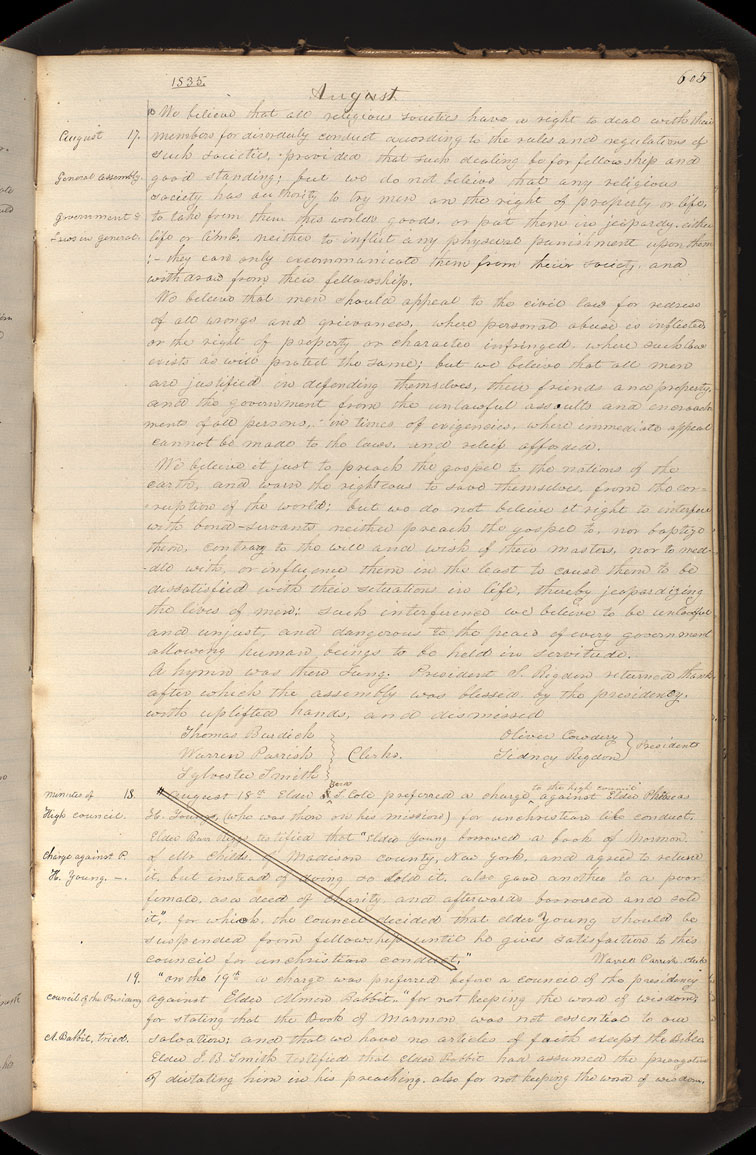 1835.
August
605
August 17.
General assembly.
Government &
Laws in general.
We believe that all religious societies have a right to deal with their
members for disorderly conduct according to the rules and regulations of
such societies, provided that such dealing be for fellowship and
good standing; but we do not believe that any religious
society has authority to try men on the right of property or life,
to take from them this worlds goods, or put them in jeopardy, either
life or limb, neither to inflict any physical punishment upon them
:— they can only excommunicate them from their society, and
withdraw from their fellowship.
We believe that men should appeal to the civil law for redress
of all wrongs and grievances, where personal abuse is inflicted,
or the right of property or character infringed, where such law
exists as will protect the same; but we believe that all men
are justified in defending themselves, their friends and property,
and the government from the unlawful assaults and encroach-
ments of all persons, in times of exigencies, where immediate appeal
cannot be made to the laws, and relief afforded.
We believe it just to preach the gospel to the nations of the
earth, and warn the righteous to save themselves from the cor-
ruption of the world; but we do not believe it right to interfere
with bond-servants neither preach the gospel to, nor baptize
them, contrary to the will and wish of their masters, nor to med-
-dle with, or influence them in the least to cause them to be
dissatisfied with their situation in life, thereby jeopardizing
the lives of men: such interference we believe to be unlawful
and unjust, and dangerous to the peace of every government
allowing human beings to be held in servitude.
A hymn was then sung. President S. Rigdon returned thanks
after which the assembly was blessed by the presidency,
with uplifted hands, and dismissed
Thomas Burdick
Warren Parrish
Sylvester Smith
Clerks.
Oliver Cowdery
Sidney Rigdon
Presidents
minutes of 18.
High council.
charge against P.
H. Young. —
"August 18th Elder J. Cole preferred a charge to the high council against Elder Phineas
H. Young, (who was then on his mission) for unchristian like conduct.
Elder testified that "Elder Young borrowed a book of Mormon
of Mr Childs of Madison county, New York, and agreed to return
it, but instead of doing so sold it, also gave another to a poor
female, as a deed of charity, and afterwards borrowed and sold
it," for which, the council decided that elder Young should be
suspended from fellowship until he gives satisfaction to this
council for unchristian conduct."
Warren Parrish. clerk
19.
council of the Presidency
A. Babbit, tried.
"On the 19th a charge was preferred before a council of the presidency
against Elder Almon Babbit, "for not keeping the word of wisdom;
for stating that the Book of Mormon was not essential to our
salvation; and that we have no articles of faith except the Bible.
Elder J. B Smith testified that elder Babbit had assumed the prerogative
of dictating him in his preaching. also for not keeping the word of wisdom.